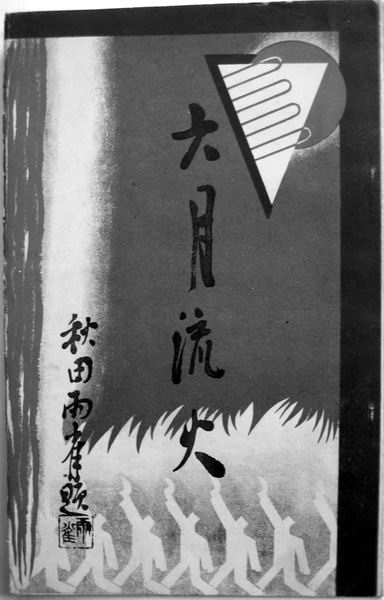 六月流火
秋田雨雀題
雨雀